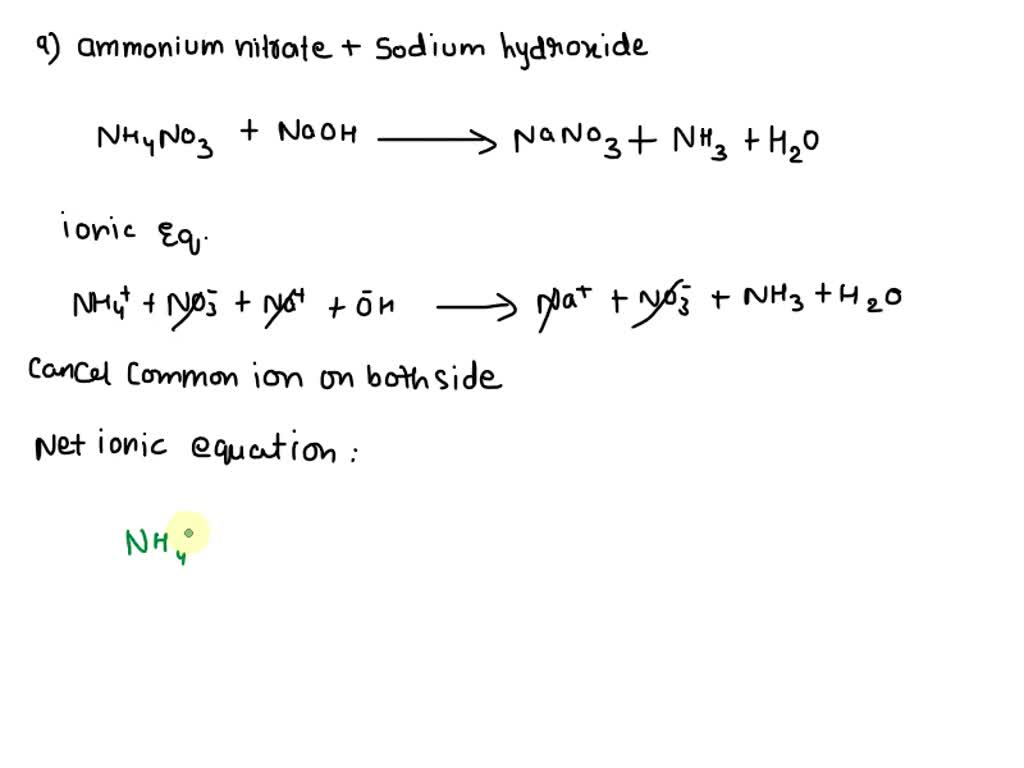 a) ammonium nitrate + sodium hydroxide
NH₄NO₃ + NaOH ⟶ NaNO₃ + NH₃ + H₂O
ionic Eq.
NH₄⁺ + NO₃⁻ + Na⁺ + ŌH ⟶ Na⁺ + NO₃⁻ + NH₃ + H₂O
Cancel Common ion on both side
Net ionic equation :
NH₄